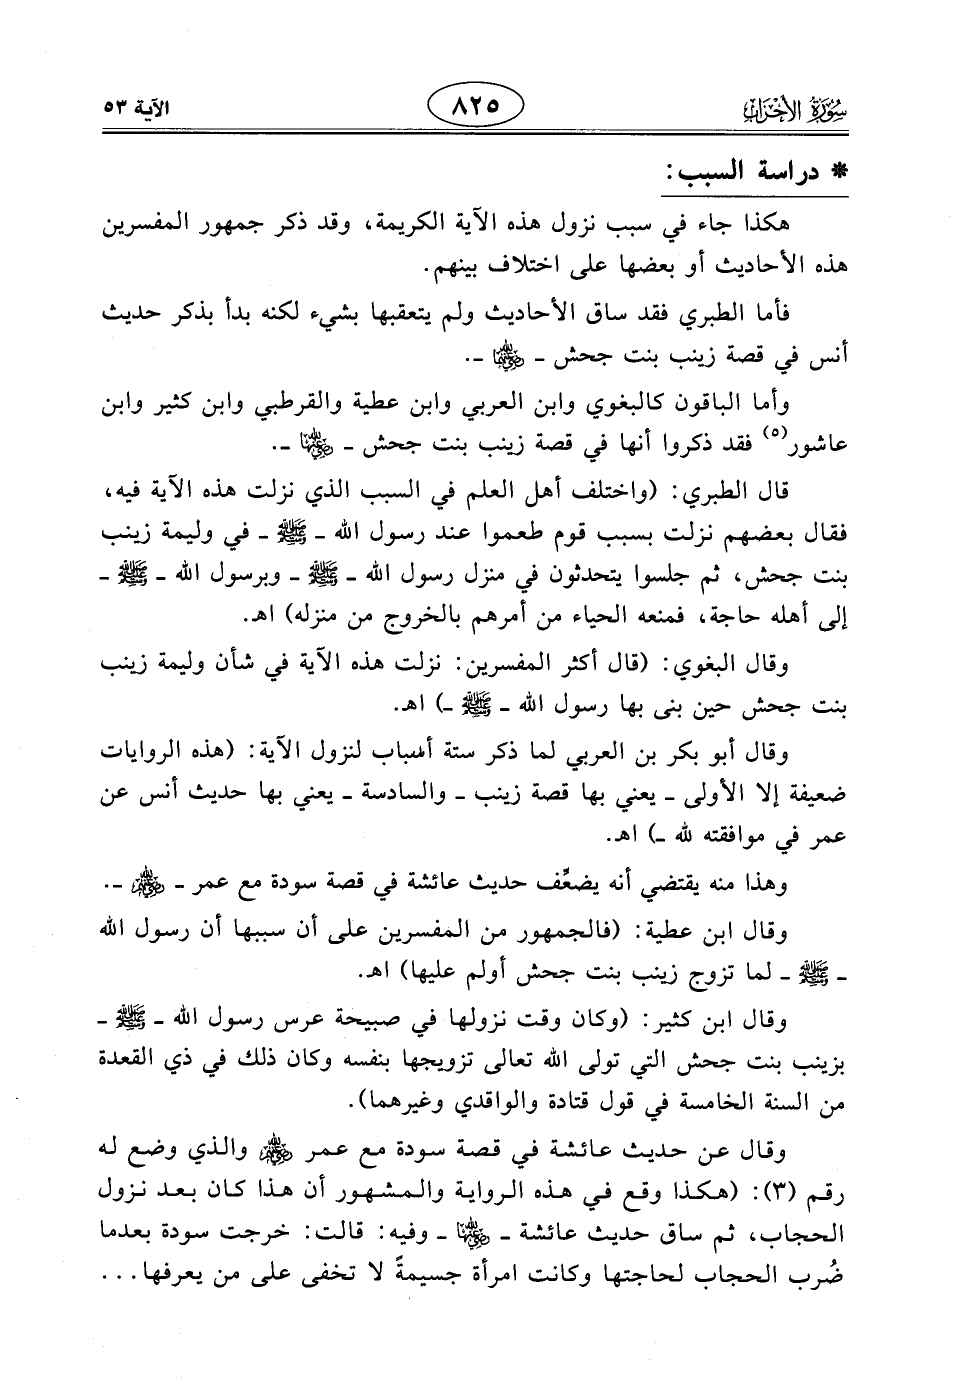 سورة الأحزاب ٨٢٥ الآية ٥٣
* دراسة السبب:
هكذا جاء في سبب نزول هذه الآية الكريمة، وقد ذكر جمهور المفسرين
هذه الأحاديث أو بعضها على اختلاف بينهم.
فأما الطبري فقد ساق الأحاديث ولم يتعقبها بشيء لكنه بدأ بذكر حديث
أنس في قصة زينب بنت جحش ـ رضي الله عنها ـ.
وأما الباقون كالبغوي وابن العربي وابن عطية والقرطبي وابن كثير وابن
عاشور(٥) فقد ذكروا أنها في قصة زينب بنت جحش ـ رضي الله عنها ـ.
قال الطبري: (واختلف أهل العلم في السبب الذي نزلت هذه الآية فيه،
فقال بعضهم نزلت بسبب قوم طعموا عند رسول الله ـ ﷺ ـ في وليمة زينب
بنت جحش، ثم جلسوا يتحدثون في منزل رسول الله ـ ﷺ ـ وبرسول الله ـ ﷺ ـ
إلى أهله حاجة، فمنعه الحياء من أمرهم بالخروج من منزله) اهـ.
وقال البغوي: (قال أكثر المفسرين: نزلت هذه الآية في شأن وليمة زينب
بنت جحش حين بنى بها رسول الله ـ ﷺ ـ) اهـ.
وقال أبو بكر بن العربي لما ذكر ستة أسباب لنزول الآية: (هذه الروايات
ضعيفة إلا الأولى ـ يعني بها قصة زينب ـ والسادسة ـ يعني بها حديث أنس عن
عمر في موافقته لله ـ) اهـ.
وهذا منه يقتضي أنه يضعِّف حديث عائشة في قصة سودة مع عمر ـ رضي الله عنهم ـ.
وقال ابن عطية: (فالجمهور من المفسرين على أن سببها أن رسول الله
ـ ﷺ ـ لما تزوج زينب بنت جحش أولم عليها) اهـ.
وقال ابن كثير: (وكان وقت نزولها في صبيحة عرس رسول الله ـ ﷺ ـ
بزينب بنت جحش التي تولى الله تعالى تزويجها بنفسه وكان ذلك في ذي القعدة
من السنة الخامسة في قول قتادة والواقدي وغيرهما).
وقال عن حديث عائشة في قصة سودة مع عمر رضي الله عنهم والذي وضع له
رقم (٣): (هكذا وقع في هذه الرواية والمشهور أن هذا كان بعد نزول
الحجاب، ثم ساق حديث عائشة ـ رضي الله عنها ـ وفيه: قالت: خرجت سودة بعدما
ضُرب الحجاب لحاجتها وكانت امرأة جسيمةً لا تخفى على من يعرفها...